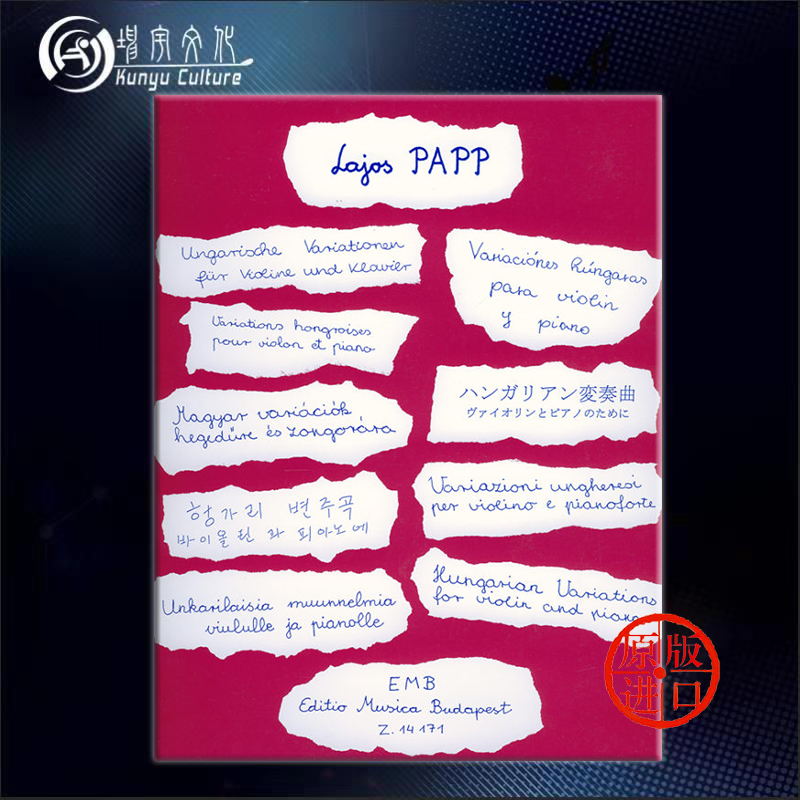 堦宇文化
Kunyu Culture
Lajos PAPP
Ungarische Variationen
für Violine und Klavier
Variaciónes húngaras
para violin
y piano
Variations hongroises
pour violon et piano
ハンガリアン変奏曲
ヴァイオリンとピアノのために
Magyar variációk
hegedűre és zongorára
Variazioni ungheresi
per violino e pianoforte
헝가리 변주곡
바이올린 과 피아노에
Unkarilaisia muunnelmia
viululle ja pianolle
Hungarian Variations
for violin and piano
EMB
Editio Musica Budapest
Z. 14 171
原版
进口